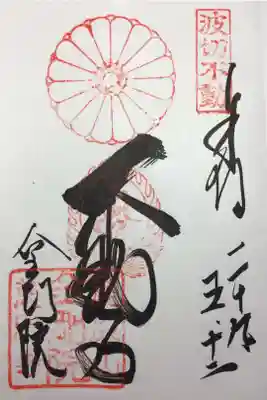 波切不動
奉拝 二十九 五 十二
不動
金剛院